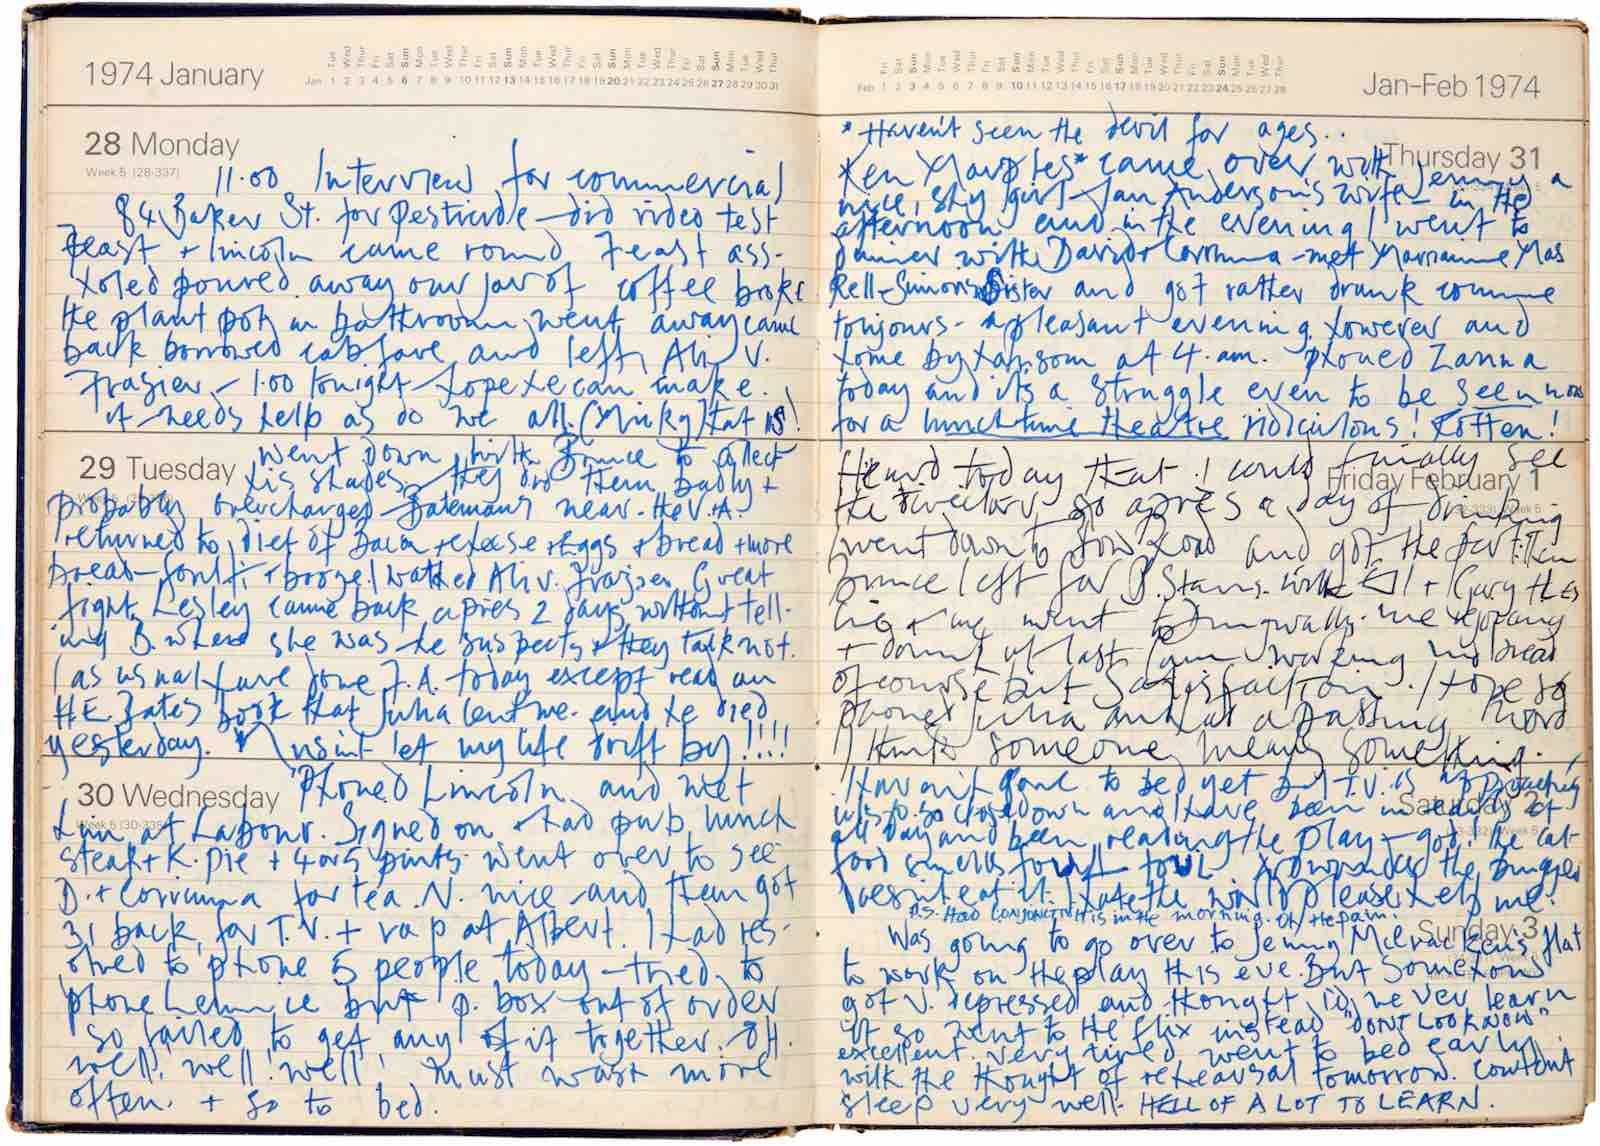 1974 January
Jan 1 2 3 4 5 6 7 8 9 10 11 12 13 14 15 16 17 18 19 20 21 22 23 24 25 26 27 28 29 30 31
28 Monday
Week 5 (28-337)
11.00 Interview for commercial
84 Baker St. for Pesticide – did video test
Feast + Lincoln came round Feast ass-
holed poured away our jar of coffee broke
the plant pot in bathroom, went away came
back borrowed cab fare and left. Ali V.
Frazier – 1.00 tonight – hope he can make
it – needs help as do we all. (Minky) that is!
29 Tuesday
went down with Bruce to collect
his shades – they did them badly +
probably overcharged – Bateman's near the V.+A.
returned to diet of Bacon + cheese + eggs + bread + more
bread – + booze! I watched Ali v. Frazier Great
fight, Lesley came back apres 2 days without tell-
ing B. where she was – he suspects + they talk not.
I as usual have done F.A. today except read an
H.E. Bates book that Julia lent me. and he died
yesterday. * Musnt let my life drift by!!!!
30 Wednesday
'Phoned Lincoln and met
him at Labour. Signed on + had pub lunch
steak + K. pie + 4 or 5 pints. went over to see
D. + Corrunna for tea. N. nice – and then got
31 back for T.V. + rap at Albert. I had res-
olved to 'phone 5 people today – tried to
'phone but p. box out of order
so failed to get any of it together. OH.
well, well well! Must wash more
often. + so to bed.
Jan–Feb 1974
Feb 1 2 3 4 5 6 7 8 9 10 11 12 13 14 15 16 17 18 19 20 21 22 23 24 25 26 27 28
* Haven't seen the devil for ages..
Thursday 31
Ken Marples* came over with Jenny, a
nice, shy girl – Ian Anderson's wife – in the
afternoon and in the evening I went to
dinner with David + Corrunna – met Marrianne Mas
Rell – Simon's Sister and got rather drunk comme
toujours – a pleasant evening however and
home by Hansom at 4.am. phoned Zanna
today and its a struggle even to be seen now
for a lunchtime theatre ridiculous! Rotten!
Friday February 1
Heard today that I could finally see
the director. so apres a day of drinking
I went down to Bow Road and got the part. Then
Bruce left for B. Stairs. with El + Gary the
+ me went to Dingwalls. me rejoicing
+ doing it at last. (gum working no bread
of course but Satisfaction. I hope so
phoned Julia and at a passing word
I think someone means something.
Saturday 2
I havn't gone to bed yet but T.V. is approaching
close down and I have been in
all day and been reading the play – god! the cat-
food smells foul foul & the bugger
doesn't eat it. I hate the world please help me.
P.S. Had this in the morning. Oh the pain.
Sunday 3
Was going to go over to Jenny McCrackens flat
to work on the play this eve. But somehow
got V. depressed and thought I'd never learn
it so went to the flix instead "DONT LOOK NOW"
excellent. very tired went to bed early
with the thought of rehearsal tomorrow. content
sleep very well. HELL OF A LOT TO LEARN.